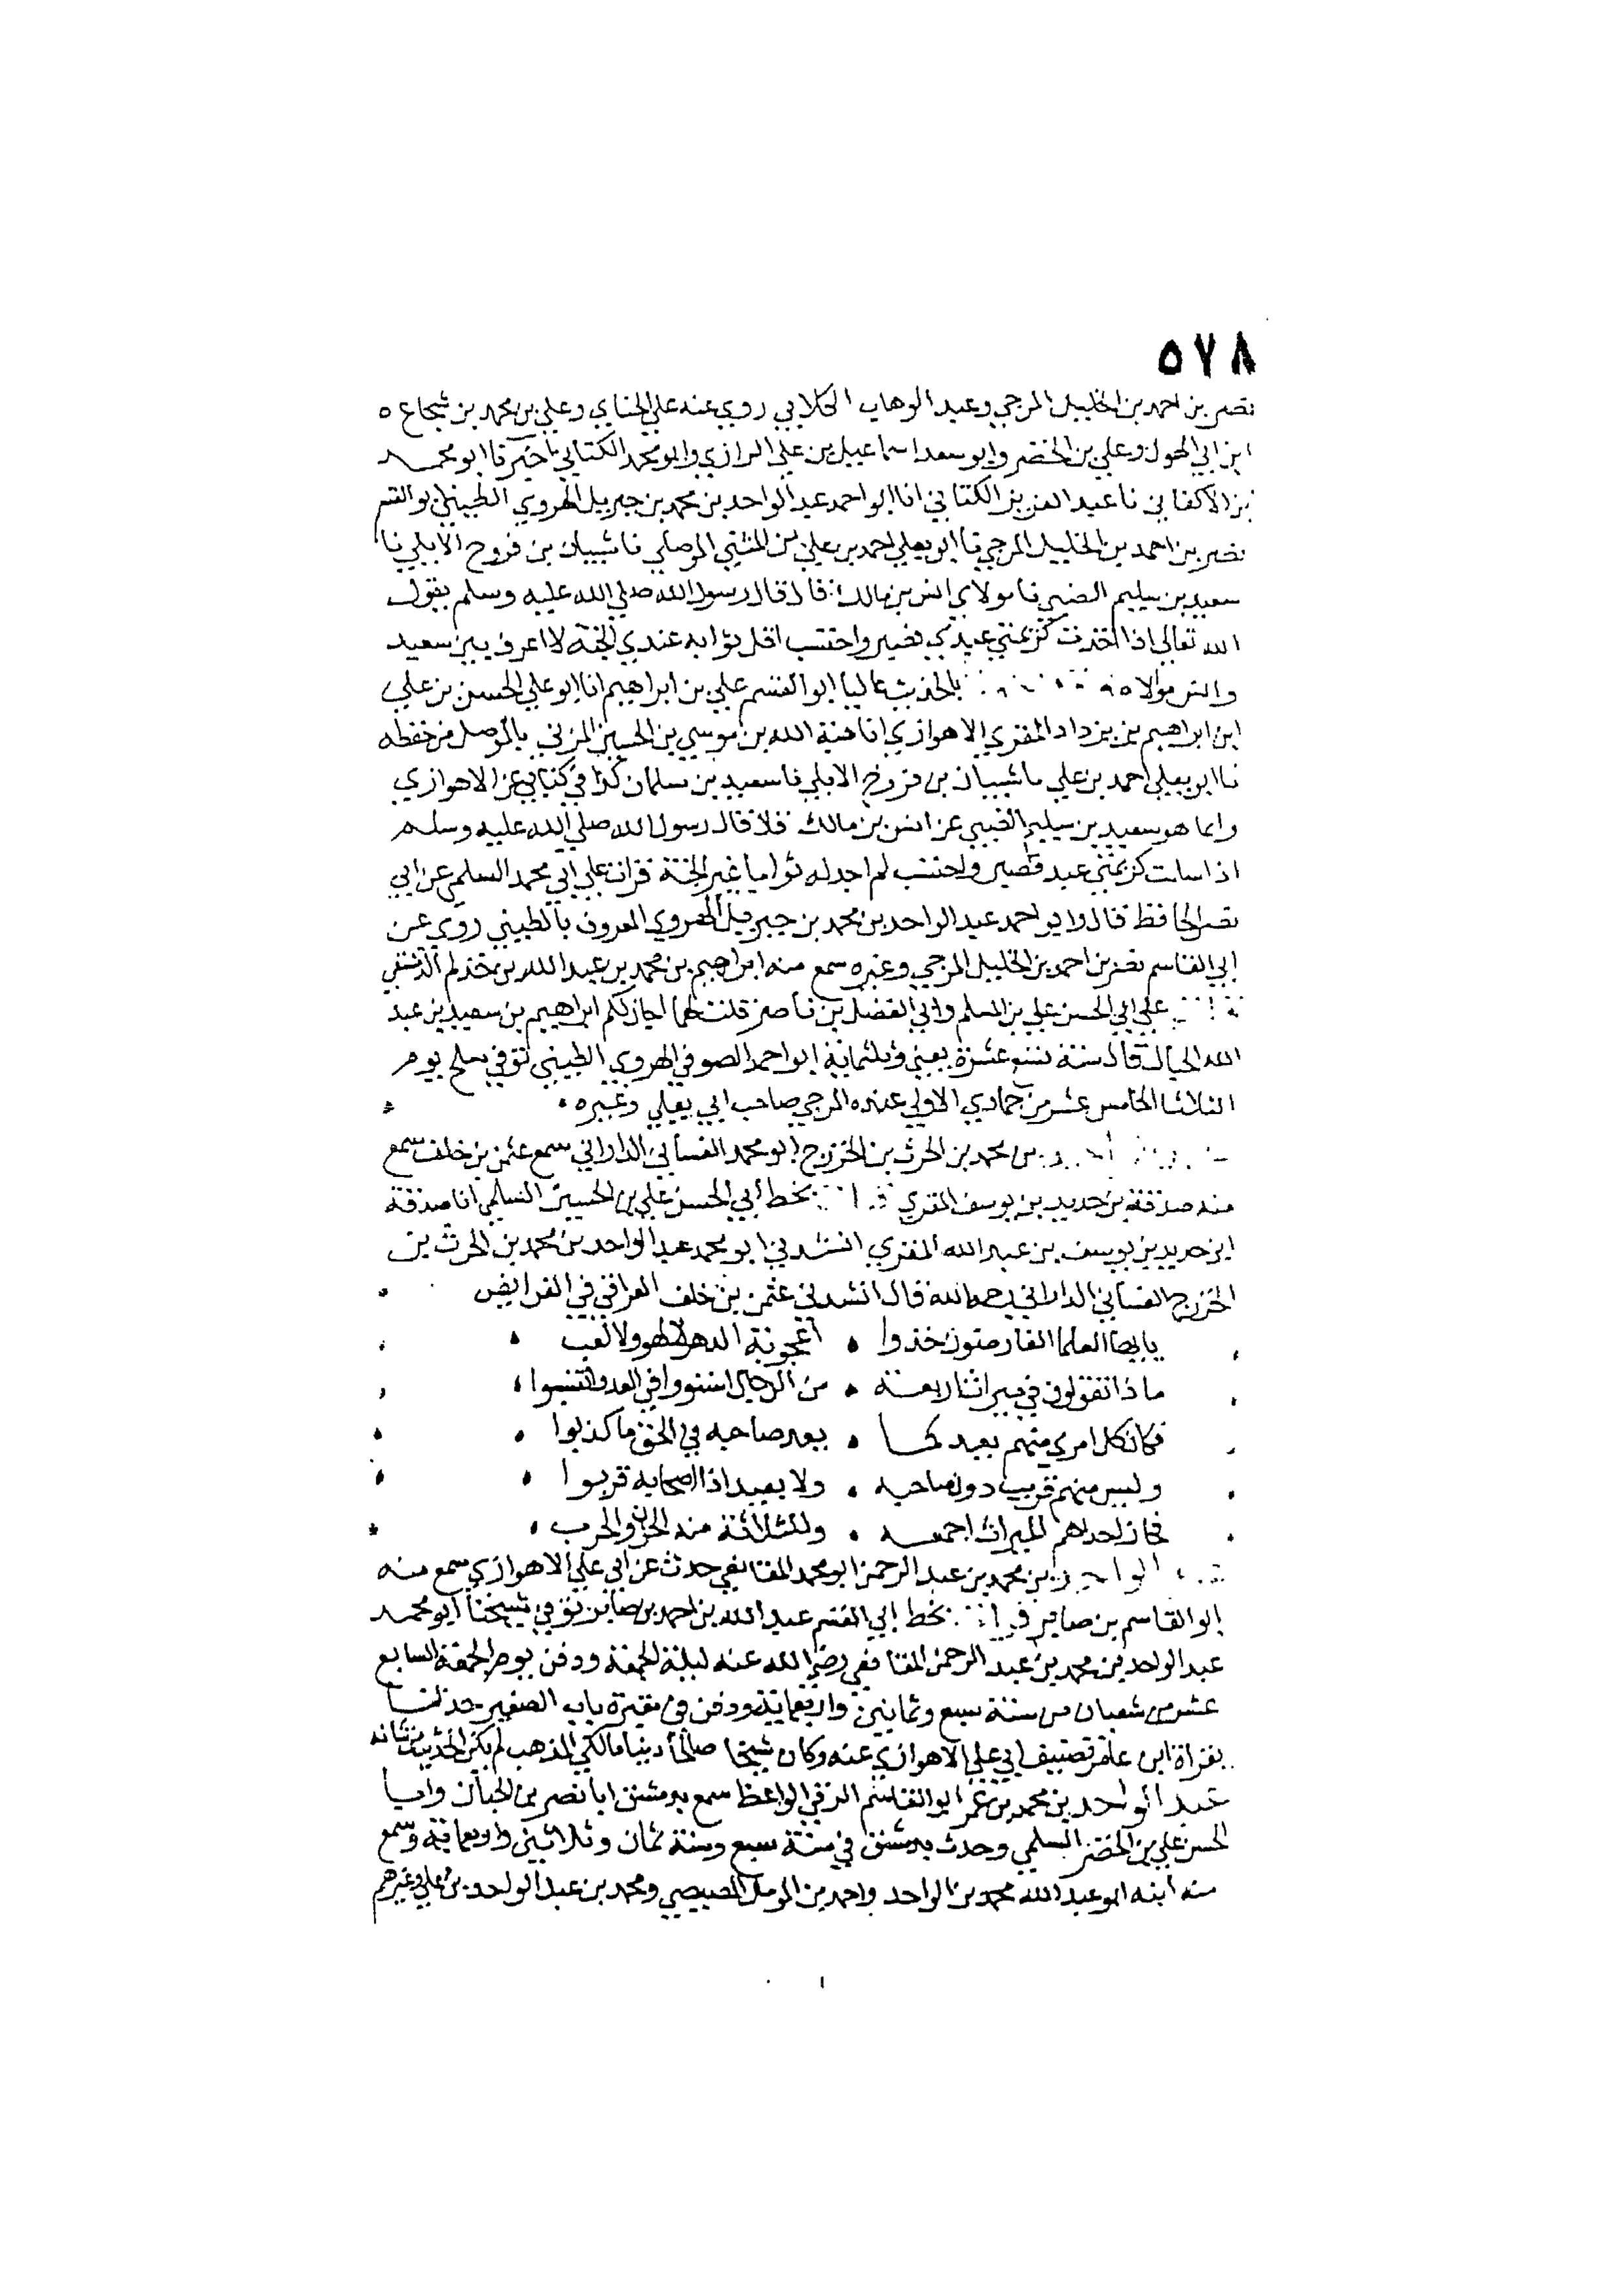 ٥٧٨
نصر بن احمد بن الخليل المرجي وعبد الوهاب الكلابي روي عنه علي الحناي وعلي بن محمد بن شجاع ٥
ابن ابي الهول وعلي بن الخضر وابو سعد اسماعيل بن علي الرازي وابو محمد الكتاني اخبرنا ابو محمد
بن الاكفاني نا عبد العزيز الكتاني انا ابو احمد عبد الواحد بن محمد بن جبريل الهروي الطبيني ابو القسم
نصر بن احمد بن الخليل المرجي نا ابو يعلي احمد بن علي بن المثني الموصلي نا شيبان بن فروخ الابلي نا
سعيد بن سليم الضبي نا مولاي انس بن مالك قال قال رسول الله صلي الله عليه وسلم يقول
الله تعالى اذا اخذت كريمتي عبدي فصبر واحتسب اقل ثوابه عندي الجنة لا اعرف بين سعيد
وانس مولاه بالحديث عاليا ابو القسم علي بن ابراهيم انا ابو علي الحسن بن علي
ابن ابراهيم بن يزداد المقري الاهوازي انا هبة الله بن موسي بن الحسين المزني بالموصل من حفظه
نا ابو يعلي احمد بن علي نا شيبان بن فروخ الابلي نا سعيد بن سلمان كذا في كتابي عن الاهوازي
وانما هو سعيد بن سليم الضبي عن انس بن مالك قال قال رسول الله صلي الله عليه وسلم
اذا سلبت كريمتي عبد فصبر واحتسب لم اجد له ثوابا غير الجنة قرات علي ابي محمد السلمي عن ابي
نصر الحافظ قال وابو احمد عبد الواحد بن محمد بن جبريل الهروي المعروف بالطبيني روي عن
ابي القاسم نصر بن احمد بن الخليل المرجي وغيره سمع منه ابراهيم بن محمد بن عبد الله بن الدمشقي
علي ابي الحسن علي بن المسلم وابي الفضل بن ناصر قلت لهما اجاز لكم ابراهيم بن سعيد بن عبد
الله الحبال قال سنة تسع عشرة يعني وثلثماية ابو احمد الصوفي الهروي الطبيني توفي يوم
الثلاثا الخامس عشر من جمادي الاولي عنده المرجي صاحب ابي يعلي وغيره
بن محمد بن الحرث بن الخزرج ابو محمد الغساني الداراني سمع عثمن بن خلف سمع
منه صدقة بن حديد بن يوسف المقري بخط ابي الحسن علي بن الحسين السلمي انا صدقة
ابن حديد بن يوسف بن عبد الله المقري انشدني ابو محمد عبد الواحد بن محمد بن الحرث بن
الخزرج الغساني الداراني رحمه الله قال انشدني عثمن بن خلف العراقي في الفرايض
يا ايها العلما الفارضون خذوا • اعجوبة الدهر لا لهو ولا لعب
ماذا تقولون في ميراث اربعة • من الرجال استووا في العد وانتسبوا
فكان كل امري منهم بعيد كما • بعد صاحبه في الحق ما كذبوا
وليس منهم قريب دون صاحبه • ولا بعيد اذا اصحابه قربوا
فحاز احداهم الميراث اجمعه • وللثلاثة منه الحزن والحرب
الواحد بن محمد بن عبد الرحمن ابو محمد المقانعي حدث عن ابي علي الاهوازي سمع منه
ابو القاسم بن صابر بخط ابي القسم عبد الله بن احمد بن صابر توفي شيخنا ابو محمد
عبد الواحد بن محمد بن عبد الرحمن المقانعي رضي الله عنه ليلة الجمعة ودفن يوم الجمعة السابع
عشر من شعبان من سنة سبع وثمانين واربعماية ودفن في مقبرة باب الصغير حدثنا
بقراة ابن عامر تصنيف ابي علي الاهوازي عنه وكان شيخا صالحا دينا مالكي المذهب لم يكن الحديث من شانه
عبد الواحد بن محمد بن عمر ابو القاسم الرقي الواعظ سمع بدمشق ابا نصر بن الجبان وابا
الحسن علي بن الخضر السلمي وحدث بدمشق في سنة سبع وسنة ثمان وثلاثين واربعماية وسمع
منه ابنه ابو عبد الله محمد بن الواحد واحمد بن المومل المصيصي ومحمد بن عبد الواحد بن علي وغيرهم